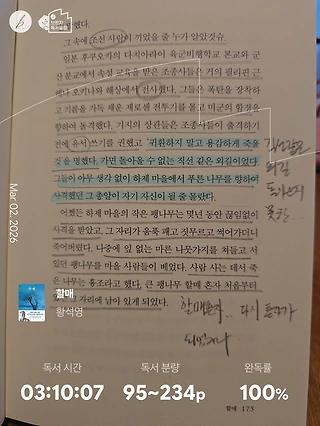 했다.
그 속에 조선 사람이 끼었을 줄 누가 알았겠슈.
일본 후쿠오카의 다치아라이 육군비행학교 본교와 군
산 분교에서 속성 교육을 받은 조종사들은 거의 필리핀 근
해나 오키나와 해상에서 전사했다. 그들은 폭탄을 장착하
고 기름을 가득 채운 제로센 전투기를 몰고 미군의 함정을
향하여 돌격했다. 기지의 상관들은 조종사들이 출격하기
전에 유서 쓰기를 권했고 '귀환하지 말고 용감하게 죽을
것'을 명했다. 가면 돌아올 수 없는 직선 같은 외길이었다.
그들이 아무 생각 없이 하제 마을에서 푸른 나무를 향하여
사격했던 그 총알이 자기 자신이 될 줄 몰랐다.
어쨌든 하제 마을의 작은 팽나무는 몇년 동안 끊임없이
사격을 받았고, 그 자리가 움푹 패고 짓무르고 썩어가더니
죽어버렸다. 나중에 잎 없는 마른 나뭇가지를 쳐들고 서
있던 팽나무를 마을 사람들이 베었다. 사람 사는 데서 죽
은 나무는 흉조라고 했다. 큰 팽나무 할매 혼자 처음부터
자리에 남아 있게 되었다.
외길
할매 혼자 다시
할매 173
Mar 02, 2026
할매
황석영
독서 시간
03:10:07
독서 분량
95~234p
완독률
100%